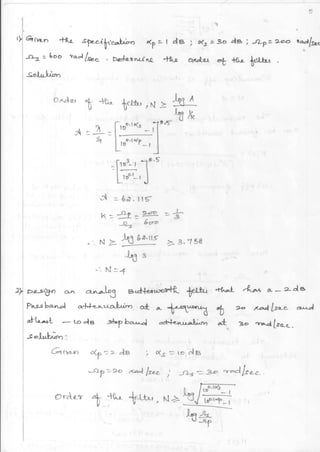 5
1) Given the specification αp = 1 dB ; αs = 30 dB ; Ωp = 200 rad/sec
Ωs = 600 rad/sec . Determine the order of the filter .
Solution
Order of the filter , N ≥ log A / log 1/k
A = λ/ε = [ (10^0.1αs - 1) / (10^0.1αp - 1) ]^0.5
= [ (10^3 - 1) / (10^0.1 - 1) ]^0.5
A = 62.115
k = Ωp/Ωs = 200/600 = 1/3
∴ N ≥ log 62.115 / log 3 ≥ 3.758
∴ N = 4
2) Design an analog Butterworth filter that has a -2 dB
Passband attenuation at a frequency of 20 rad/sec and
atleast -10 dB stop band attenuation at 30 rad/sec.
Solution :
Given αp = 2 dB ; αs = 10 dB
Ωp = 20 rad/sec ; Ωs = 30 rad/sec.
Order of the filter , N ≥ log √( (10^0.1αs - 1) / (10^0.1αp - 1) ) / log Ωs/Ωp